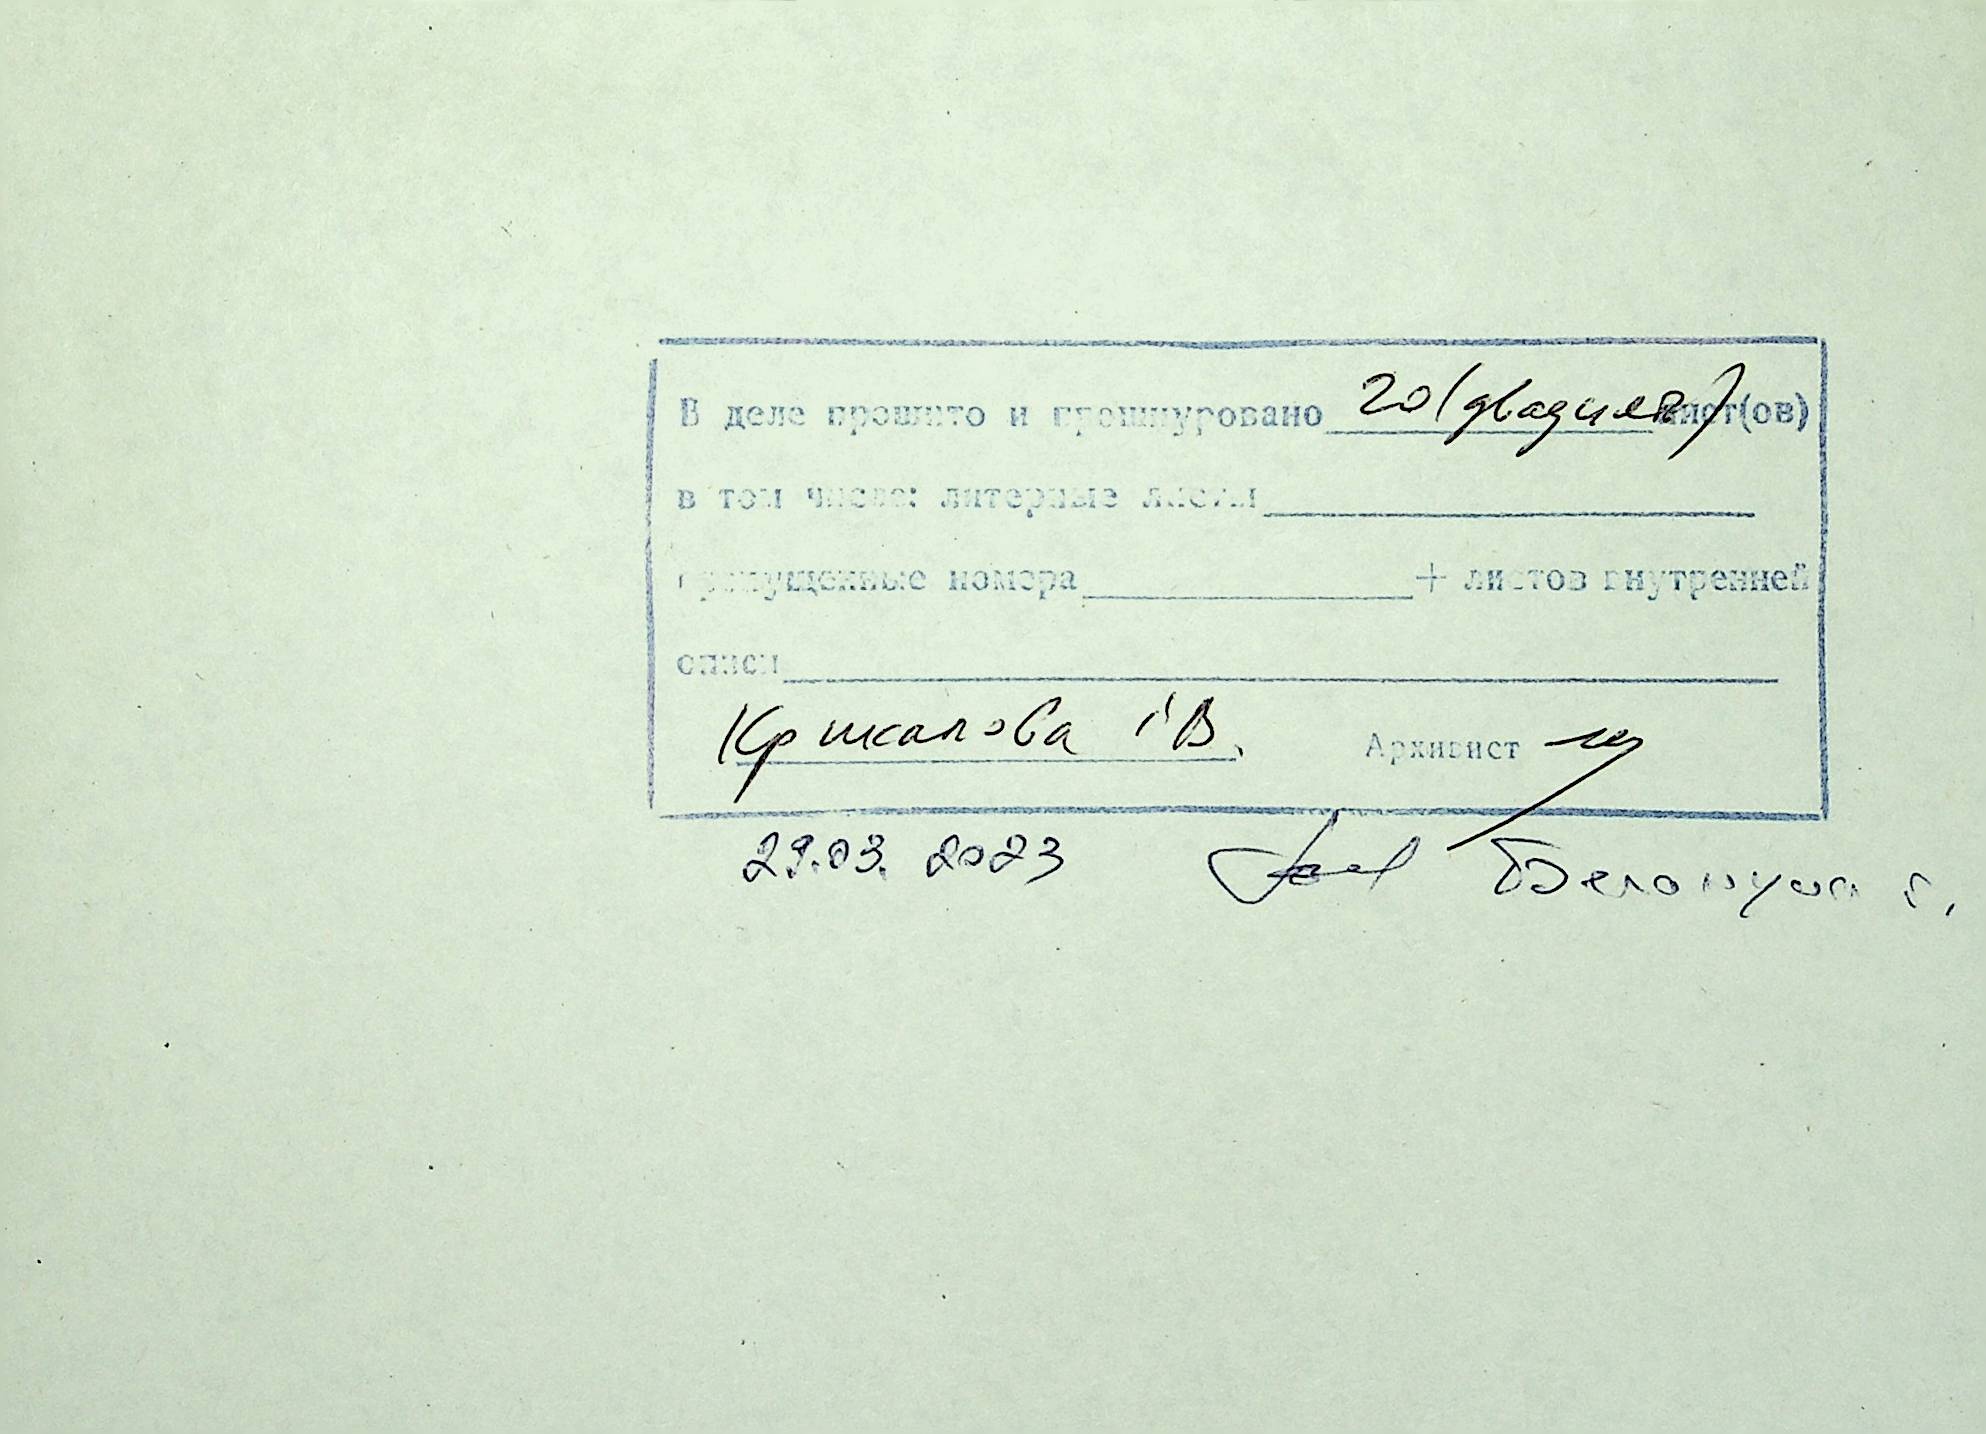 В деле прошито и прошнуровано 20 (двадцать) лист(ов)
в том числе: литерные листы
пропущенные номера + листов внутренней
описи
В. Архивист
29.03.2023